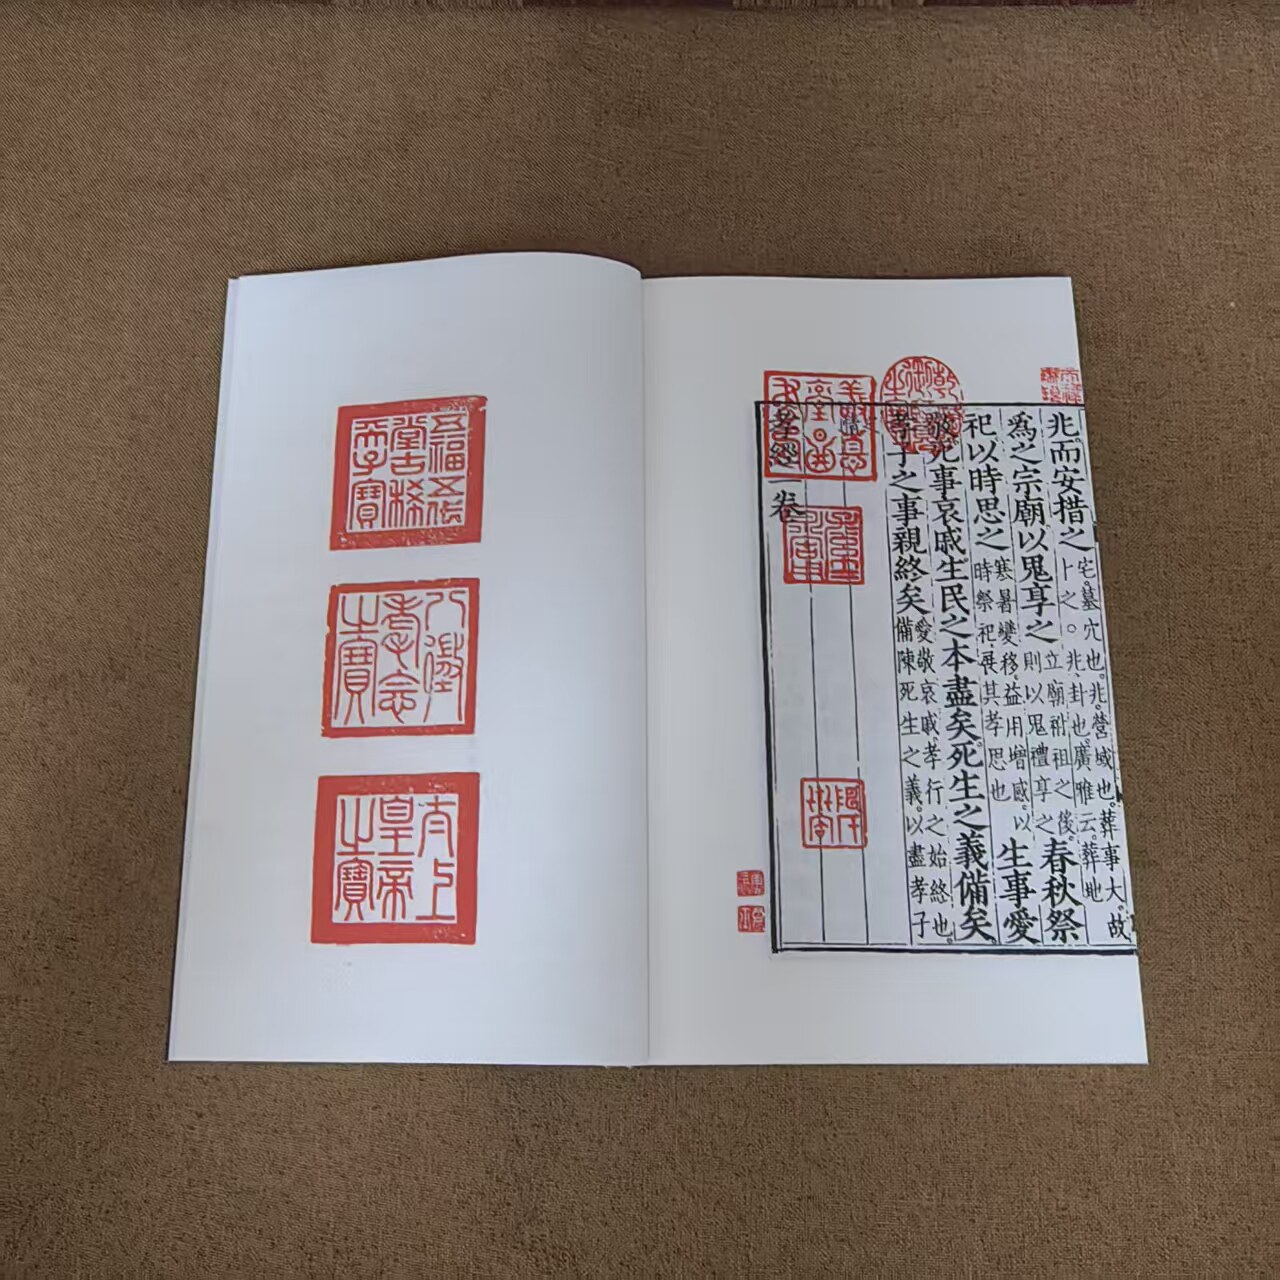 兆而安措之
宅。墓穴也。兆。營域也。葬事大。故
卜之。○兆。卦也。廣雅云。葬地
爲之宗廟以鬼享之
立廟祔祖之後。
則以鬼禮享之
春秋祭
祀以時思之
寒暑變移。益用增感。以
時祭祀。展其孝思也
生事愛
敬死事哀戚生民之本盡矣死生之義備矣
孝子之事親終矣
愛敬哀戚。孝行之始終也。
備陳死生之義。以盡孝子
之情
孝經一卷
天祿琳琅
乾隆御覽之寶
五福五代堂古稀天子寶
八徵耄念之寶
太上皇帝之寶